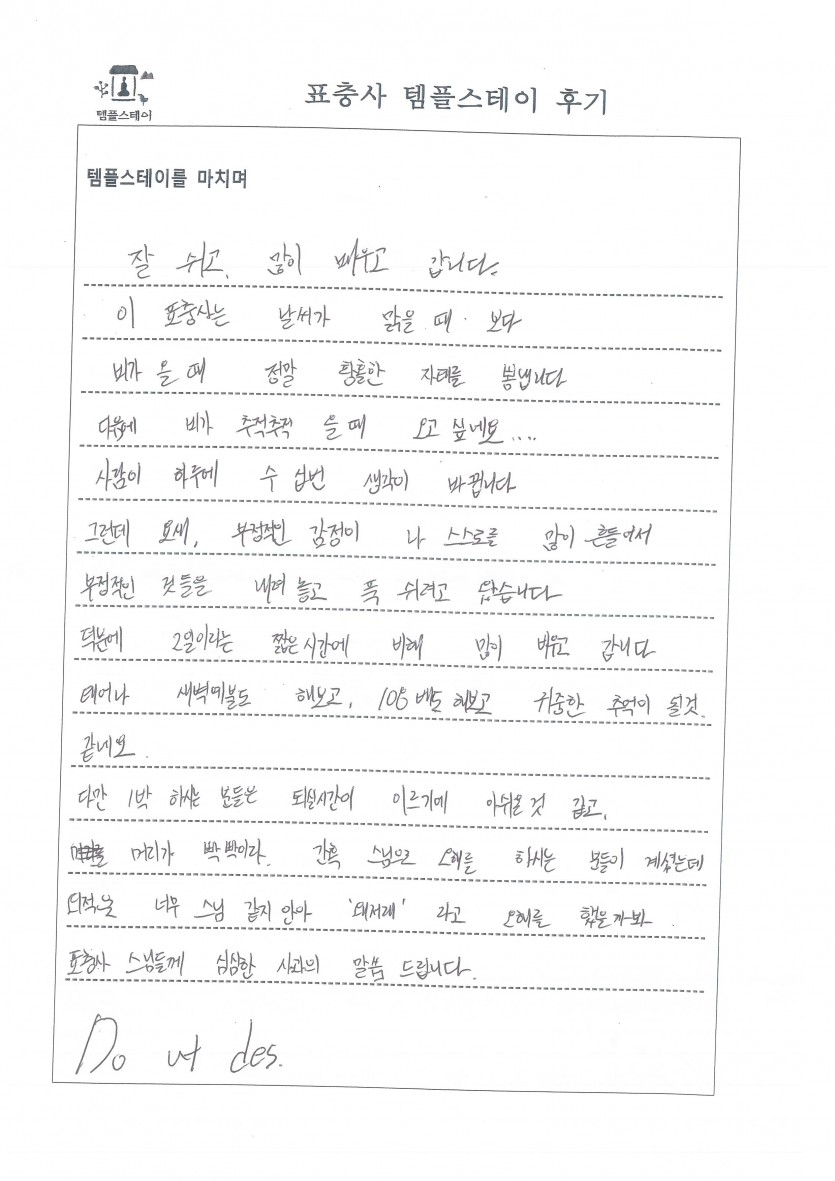 템플스테이
표충사 템플스테이 후기
템플스테이를 마치며
잘 쉬고, 많이 배우고 갑니다.
이 표충사는 날씨가 맑을 때 보다
비가 올 때 정말 황홀한 자태를 뽐냅니다
다음에 비가 추적추적 올 때 오고 싶네요....
사람이 하루에 수 십번 생각이 바뀝니다
그런데 요새, 부정적인 감정이 나 스스로를 많이 흔들어서
부정적인 것들을 내려 놓고 푹 쉬려고 왔습니다
덕분에 2일이라는 짧은 시간에 비해 많이 배우고 갑니다
태어나 새벽예불도 해보고, 108배도 해보고 귀중한 추억이 될것.
같네요.
다만 1박 하시는 분들은 퇴실시간이 이르기에 아쉬울 것 같고,
머리가 빡빡이라. 간혹 스님으로 오해를 하시는 분들이 계셨는데
외적으로 너무 스님 같지 않아 '왜저래' 라고 오해를 했을까봐
표충사 스님들께 심심한 사과의 말씀 드립니다.
Do ut des.